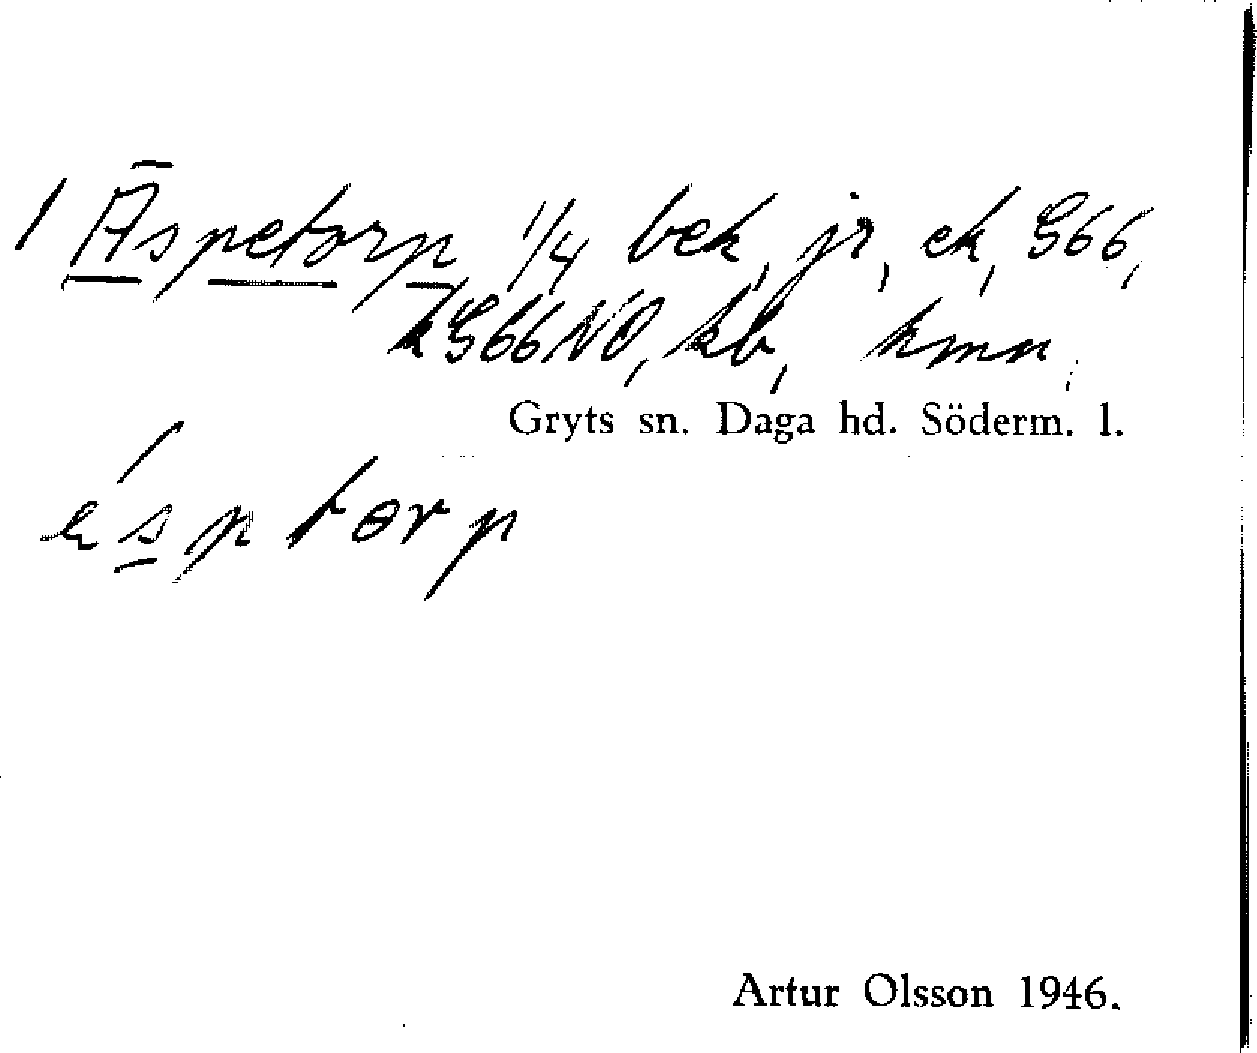 1 Äspetorp 1/4 bek, jr, ek, G66,
kG66NO, kb, kmn.
Gryts sn. Daga hd. Söderm. l.
ésptorp
Artur Olsson 1946.